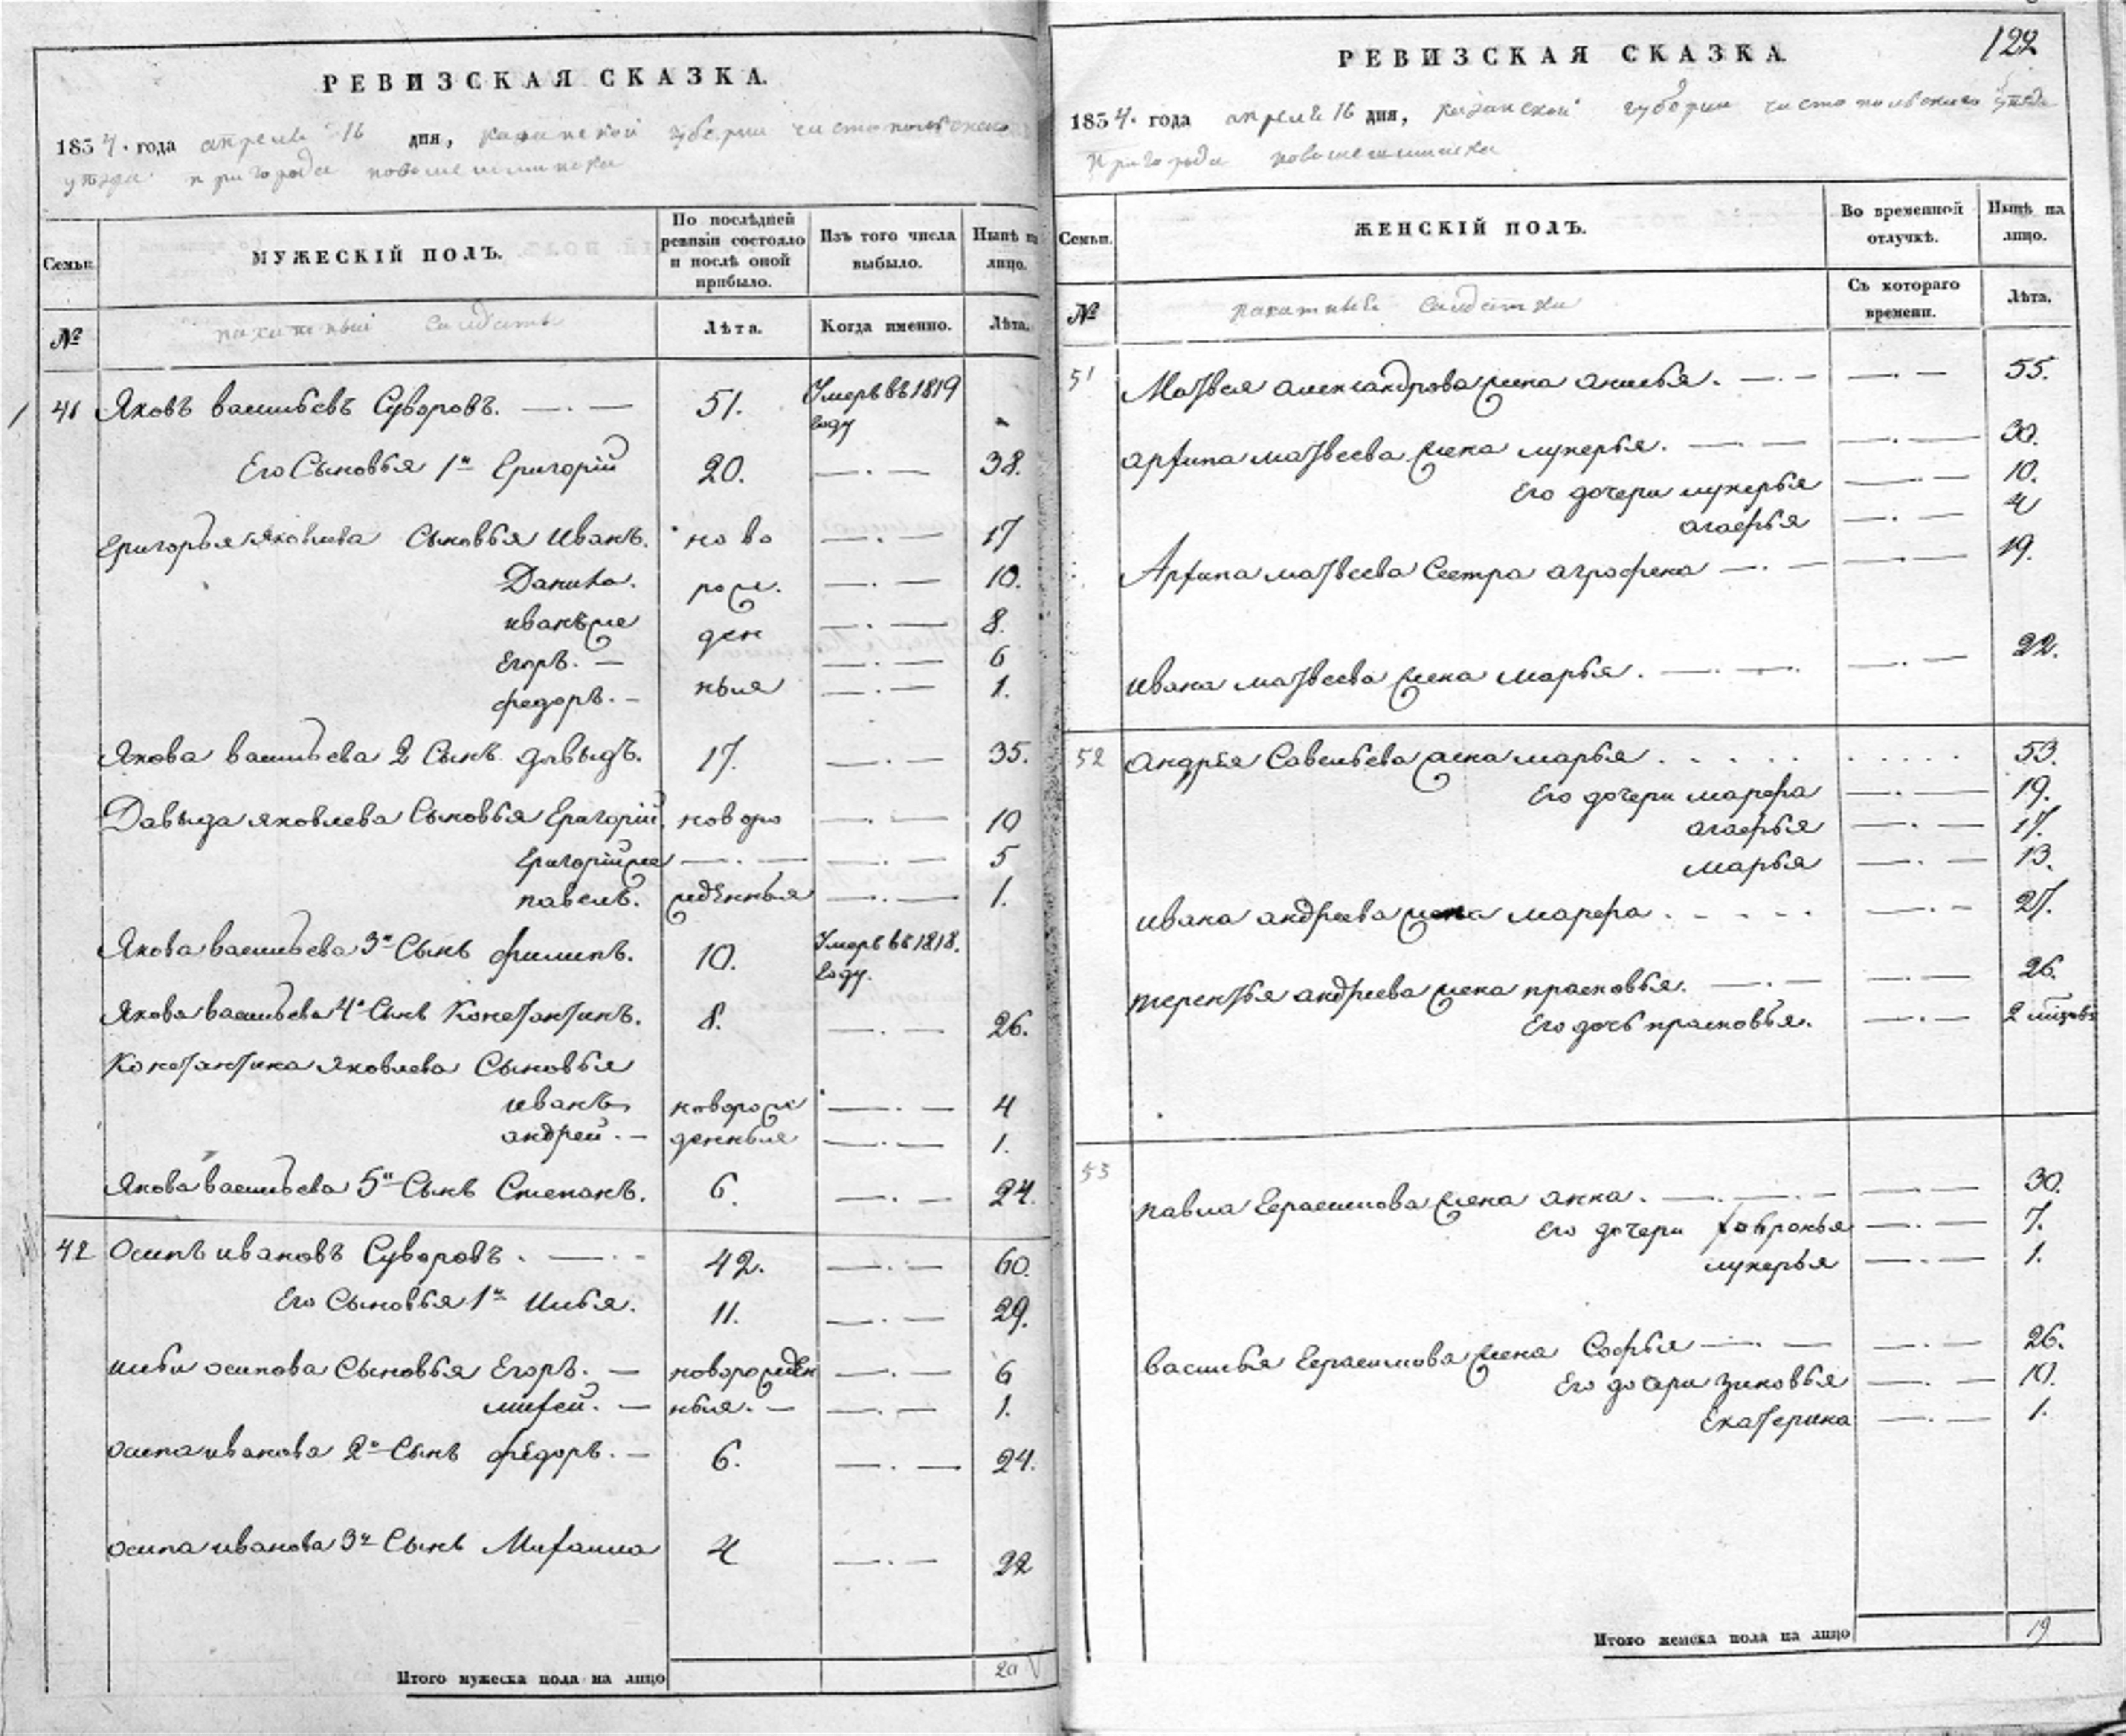 РЕВИЗСКАЯ СКАЗКА.
1834. года апреля 16 дня, казанской губернии чистопольскаго
уѣзда пригорода новошешминска
Семьи.
МУЖЕСКІЙ ПОЛЪ.
По послѣдней ревизіи состояло и послѣ оной прибыло.
Изъ того числа выбыло.
Нынѣ на лицо.
№
пахатныи солдаты
Лѣта.
Когда именно.
Лѣта.
41 Яковъ васильевъ Суворовъ. 51. Умеръ въ 1819 году
Его Сыновья 1й Григорій 20. 38.
Григорья яковлева Сыновья Иванъ. ново 17
Данило. рож. 10.
иванъ же ден 8.
Егоръ. 6
федоръ. ныя 1.
Якова васильева 2 Сынъ давыдъ. 17. 35.
Давыда яковлева Сыновья Григорій. новоро 10
Григорій же 5
павелъ. жденныя 1.
Якова васильева 3й Сынъ филипъ. 10. Умеръ въ 1818. году.
Якова васильева 4й Сынъ Констянтинъ. 8. 26.
Констянтина яковлева Сыновья
иванъ новорож 4
андрей. денныя 1.
Якова васильева 5й Сынъ Степанъ. 6. 24.
42 Осипъ ивановъ Суворовъ. 42. 60.
Его Сыновья 1й Илья. 11. 29.
ильи осипова Сыновья Егоръ. новорожден 6
михей. ныя. 1.
осипа иванова 2й Сынъ фёдоръ. 6. 24.
осипа иванова 3й Сынъ Михаила 4 22
Итого мужеска пола на лицо 20
122
РЕВИЗСКАЯ СКАЗКА
1834. года апреля 16 дня, казанской губернии чистопольскаго уѣзда
Пригорода новошешминска
Семьи.
ЖЕНСКІЙ ПОЛЪ.
Во временной отлучкѣ.
Нынѣ на лицо.
№
пахатныи солдатки
Съ котораго времени.
Лѣта.
51 Матвея александрова жена аксинья. 55.
архипа матвеева жена лукерья. 30.
Его дочери лукерья 10.
агафья 4
Архипа матвеева Сестра аграфена 19.
ивана матвеева жена марья. 22.
52 андрея Савельева жена марья 53.
Его дочери марфа 19.
агафья 17.
марья 13.
ивана андреева жена марфа. 27.
терентья андреева жена прасковья. 26.
Его дочь прасковья. 2
53
павла Герасимова жена анна. 30.
Его дочери хавронья 7.
лукерья 1.
василья Герасимова жена Софья 26.
Его дочери зиновья 10.
Екатерина 1.
Итого женска пола на лицо 19